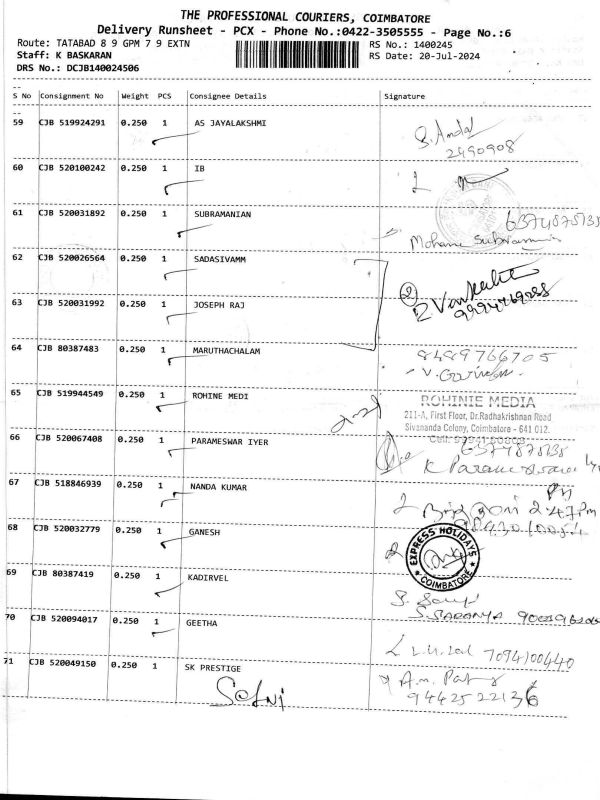 THE PROFESSIONAL COURIERS, COIMBATORE
Delivery Runsheet - PCX - Phone No.:0422-3505555 - Page No.:6
Route: TATABAD 8 9 GPM 7 9 EXTN RS No.: 1400245
Staff: K BASKARAN RS Date: 20-Jul-2024
DRS No.: DCJB140024506
S No Consignment No Weight PCS Consignee Details Signature
59 CJB 519924291 0.250 1 AS JAYALAKSHMI
2490908
60 CJB 520100242 0.250 1 IB
61 CJB 520031892 0.250 1 SUBRAMANIAN
6374875135
Mohana Subramani
62 CJB 520026564 0.250 1 SADASIVAMM
63 CJB 520031992 0.250 1 JOSEPH RAJ
64 CJB 80387483 0.250 1 MARUTHACHALAM
8489766705
65 CJB 519944549 0.250 1 ROHINE MEDI
ROHINIE MEDIA
211-A, First Floor, Dr.Radhakrishnan Road
Sivananda Colony, Coimbatore - 641 012.
66 CJB 520067408 0.250 1 PARAMESWAR IYER
67 CJB 518846939 0.250 1 NANDA KUMAR
2.47 Pm
68 CJB 520032779 0.250 1 GANESH
EXPRESS HOLIDAYS
COIMBATORE
69 CJB 80387419 0.250 1 KADIRVEL
S.SARANYA
70 CJB 520094017 0.250 1 GEETHA
7094100440
71 CJB 520049150 0.250 1 SK PRESTIGE
9442522136